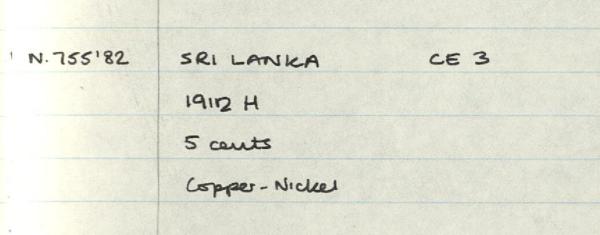 N.755'82 SRI LANKA CE 3
1912 H
5 cents
Copper-Nickel